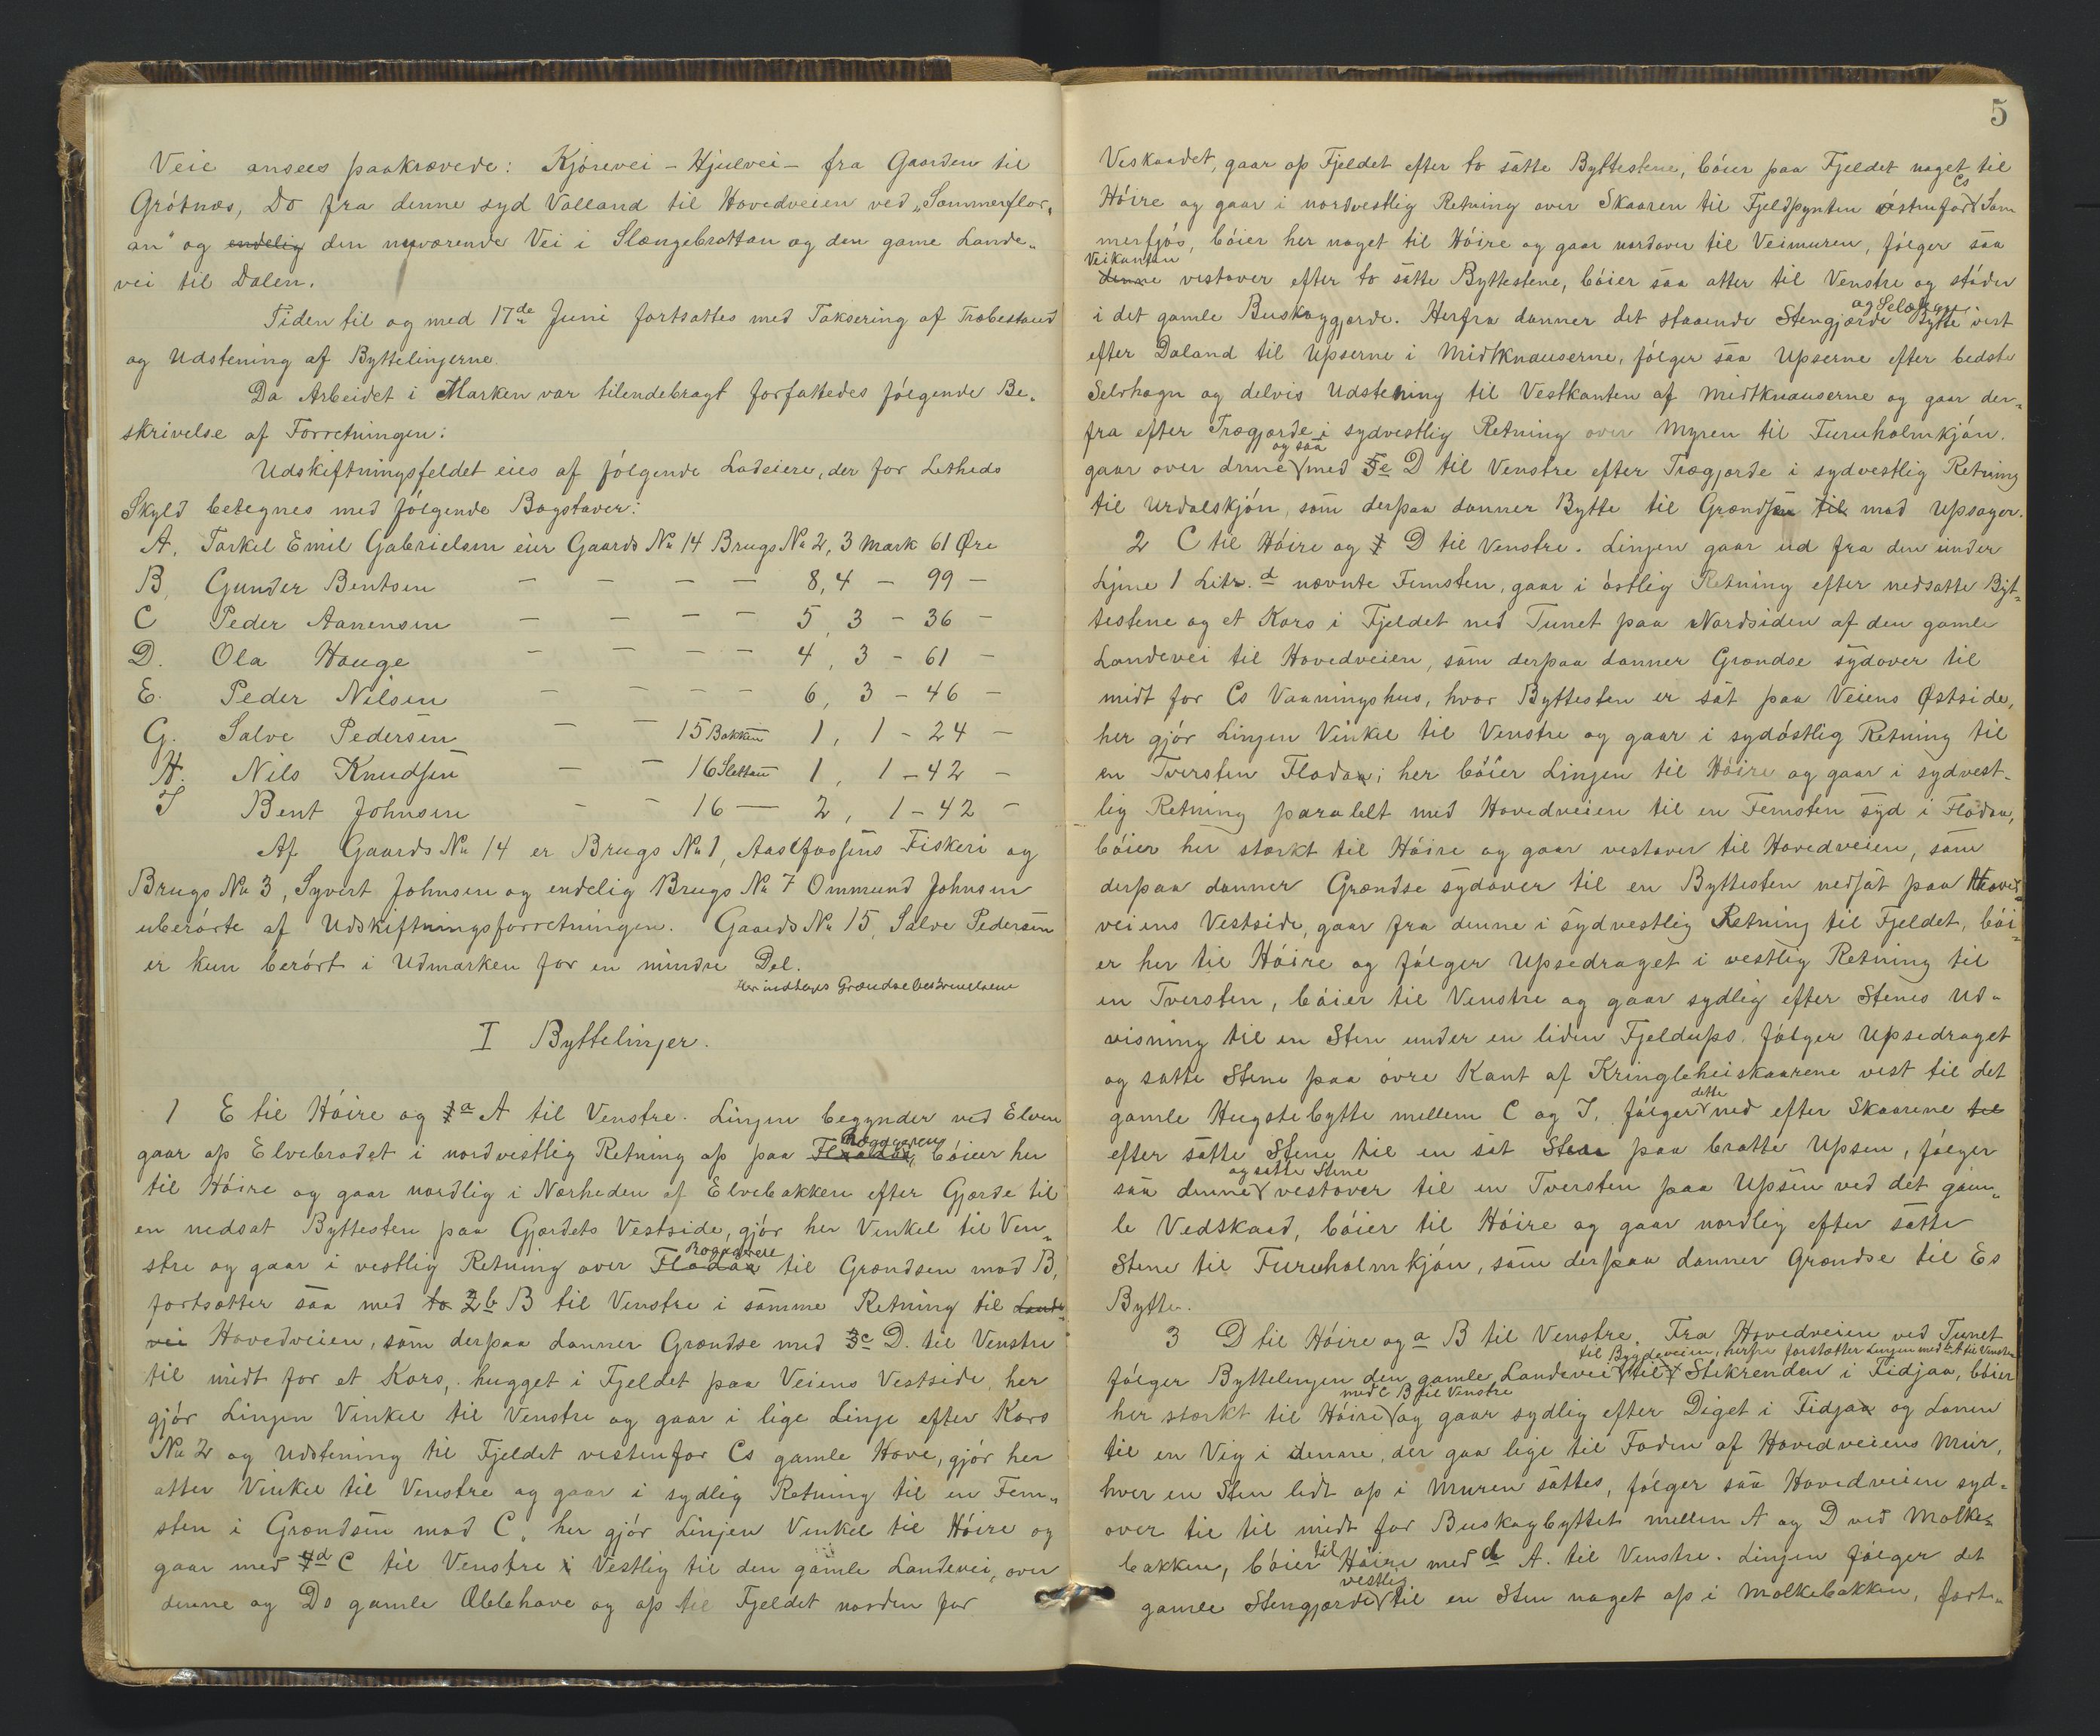 Veie ansees paakrævede: Kjørevei - Hjulvei - fra Gaarden til
Grótnæs, Do fra denne syd Valland til Hovedveien ved „Sommerflor„
an" og endelig den nuværende Vei i Slængebrattan og den game Lande„
vei til Dalen.
Tiden til og med 17de Juni fortsattes med Taksering af Træbestand
og Udstening af Byttelinjerne.
Da Arbeidet i Marken var tilendebragt forfattedes følgende Be„
skrivelse af Forretningen:
Udskiftningsfeldet eies af følgende Lodeiere, der for Letheds
Skyld betegnes med følgende Bogstaver:
A, Tarkel Emil Gabrielsen eier Gaards No 14 Brugs No 2, 3 Mark 61 Øre
B, Gunder Bentsen — — — — 8, 4 — 99 —
C Peder Aanensen — — — — 5, 3 — 36 —
D. Ola Hauge — — — — 4, 3 — 61 —
E. Peder Nilsen — — — — 6, 3 — 46 —
G. Salve Pedersen — — 15 Bakken 1, 1 — 24 —
H. Nils Knudsen — — 16 Slettan 1, 1 — 42 —
J Bent Johnsen — — 16 — 2, 1 — 42 —
Af Gaards No 14 er Brugs No 1, Aaslfossens Fiskeri og
Brugs No 3, Syvert Johnsen og endelig Brugs No 7 Ommund Johnsen
uberørte af Udskiftningsforretningen. Gaards No 15, Salve Pedersen
er kun berørt i Udmarken for en mindre Del.
Her indtages Grændsebeskrivelsene
I Byttelinjer.
1 E til Høire og a A til Venstre. Linjen begynder ved Elven
Roggeren
gaar op Elvebradet i nordvestlig Retning op paa Flaadan, bøier her
til Høire og gaar nordlig i Nærheden af Elvebakken efter Gjærde til
en nedsat Byttesten paa Gjærdets Vestside, gjør her Vinkel til Ven„
Roggeren
stre og gaar i vestlig Retning over Flodan til Grændsen mod B,
fortsætter saa med to 2 b B til Venstre i samme Retning til Lande
vei Hovedveien, som derpaa danner Grændse med 3 c D. til Venstre
til midt for et Kors, hugget i Fjeldet paa Veiens Vestside, her
gjør Linjen Vinkel til Venstre og gaar i lige Linje efter Kors
No 2 og Udstening til Fjeldet vestenfor Cs gamle Have, gjør her
atter Vinkel til Venstre og gaar i sydlig Retning til en Fem„
sten i Grændsen mod C, her gjør Linjen Vinkel til Høire og
gaar med 4 d C til Venstre i Vestlig til den gamle Landevei, over
denne og Ds gamle Æblehave og op til Fjeldet norden for
5
Veskaadet, gaar op Fjeldet efter to satte Byttestene, bøier paa Fjeldet noget til
Cs
Høire og gaar i nordvestlig Retning over Skaaren til Fjeldpynten østenfor Som
merfjøs, bøier her noget til Høire og gaar nordover til Veimuren, følger saa
Veikanten
denne vestover efter to satte Byttestene, bøier saa atter til Venstre og støder
i det gamle Buskaggjærde. Herfra danner det staaende Stengjærde Bytte vest
efter Daland til Upserne i Midtknauserne, følger saa Upserne efter bedste
Selvhegn og delvis Udstening til Vestkanten af Midtknauserne og gaar der„
fra efter Trægjærde i sydvestlig Retning over Myren til Furuholmkjøn.
og saa
gaar over denne med e D til Venstre efter Trægjærde i sydvestlig Retning
til Urdalskjøn, som derpaa danner Bytte til Grændsen til mod Upsager.
2 C til Høire og D til Venstre. Linjen gaar ud fra den under
Linje 1 Litr. d nævnte Femsten, gaar i østlig Retning efter nedsatte Byt„
testene og et Kors i Fjeldet ned Tunet paa Nordsiden af den gamle
Landevei til Hovedveien, som derpaa danner Grændse sydover til
midt for Cs Vaaningshus, hvor Byttesten er sat paa Veiens Østside,
her gjør Linjen Vinkel til Venstre og gaar i sydøstlig Retning til
en Tversten Flodan; her bøier Linjen til Høire og gaar i sydvest-
lig Retning paralelt med Hovedveien til en Femsten syd i Flodan,
bøier her stærkt til Høire og gaar vestover til Hovedveien, som
derpaa danner Grændse sydover til en Byttesten nedsat paa Hoved„
veiens Vestside, gaar fra denne i sydvestlig Retning til Fjeldet, bøi„
er her til Høire og følger Upsedraget i vestlig Retning til
en Tversten, bøier til Venstre og gaar sydlig efter Stenes Ud„
visning til en Sten under en liden Fjeldups. følger Upsedraget
og satte Stene paa øvre Kant af Kringleheiskaarene vest til det
dette
gamle Hugstebytte mellem C og J, følger ned efter Skaarene til
efter satte Stene til en sat Sten paa bratte Upsen, følger
og satte Stene
saa denne vestover til en Tversten paa Upsen ved det gam„
le Vedskaad, bøier til Høire og gaar nordlig efter satte
Stene til Furuholmkjøn, som derpaa danner Grændse til Es
Bytte.
3 D til Høire og a B til Venstre. Fra Hovedveien ved Tunet
til Bygdeveien, herfra forsætter Linjen med b A til Venstre
følger Byttelinjen den gamle Landevei til Stekrenden i Fidjaa, bøier
med c B til Venstre
her stærkt til Høire og gaar sydlig efter Diget i Fidjaa og Lonen
til en Vig i denne, der gaa lige til Foden af Hovedveiens Mur,
hvor en Sten lidt op i Muren sattes, følger saa Hovedveien syd„
over til til midt for Buskagbyttet mellem A og D ved Molke„
til
bakken, bøier Høire med d A. til Venstre. Linjen følger det
vestlig
gamle Stengjærde til en Sten noget op i Molkebakken, fort„